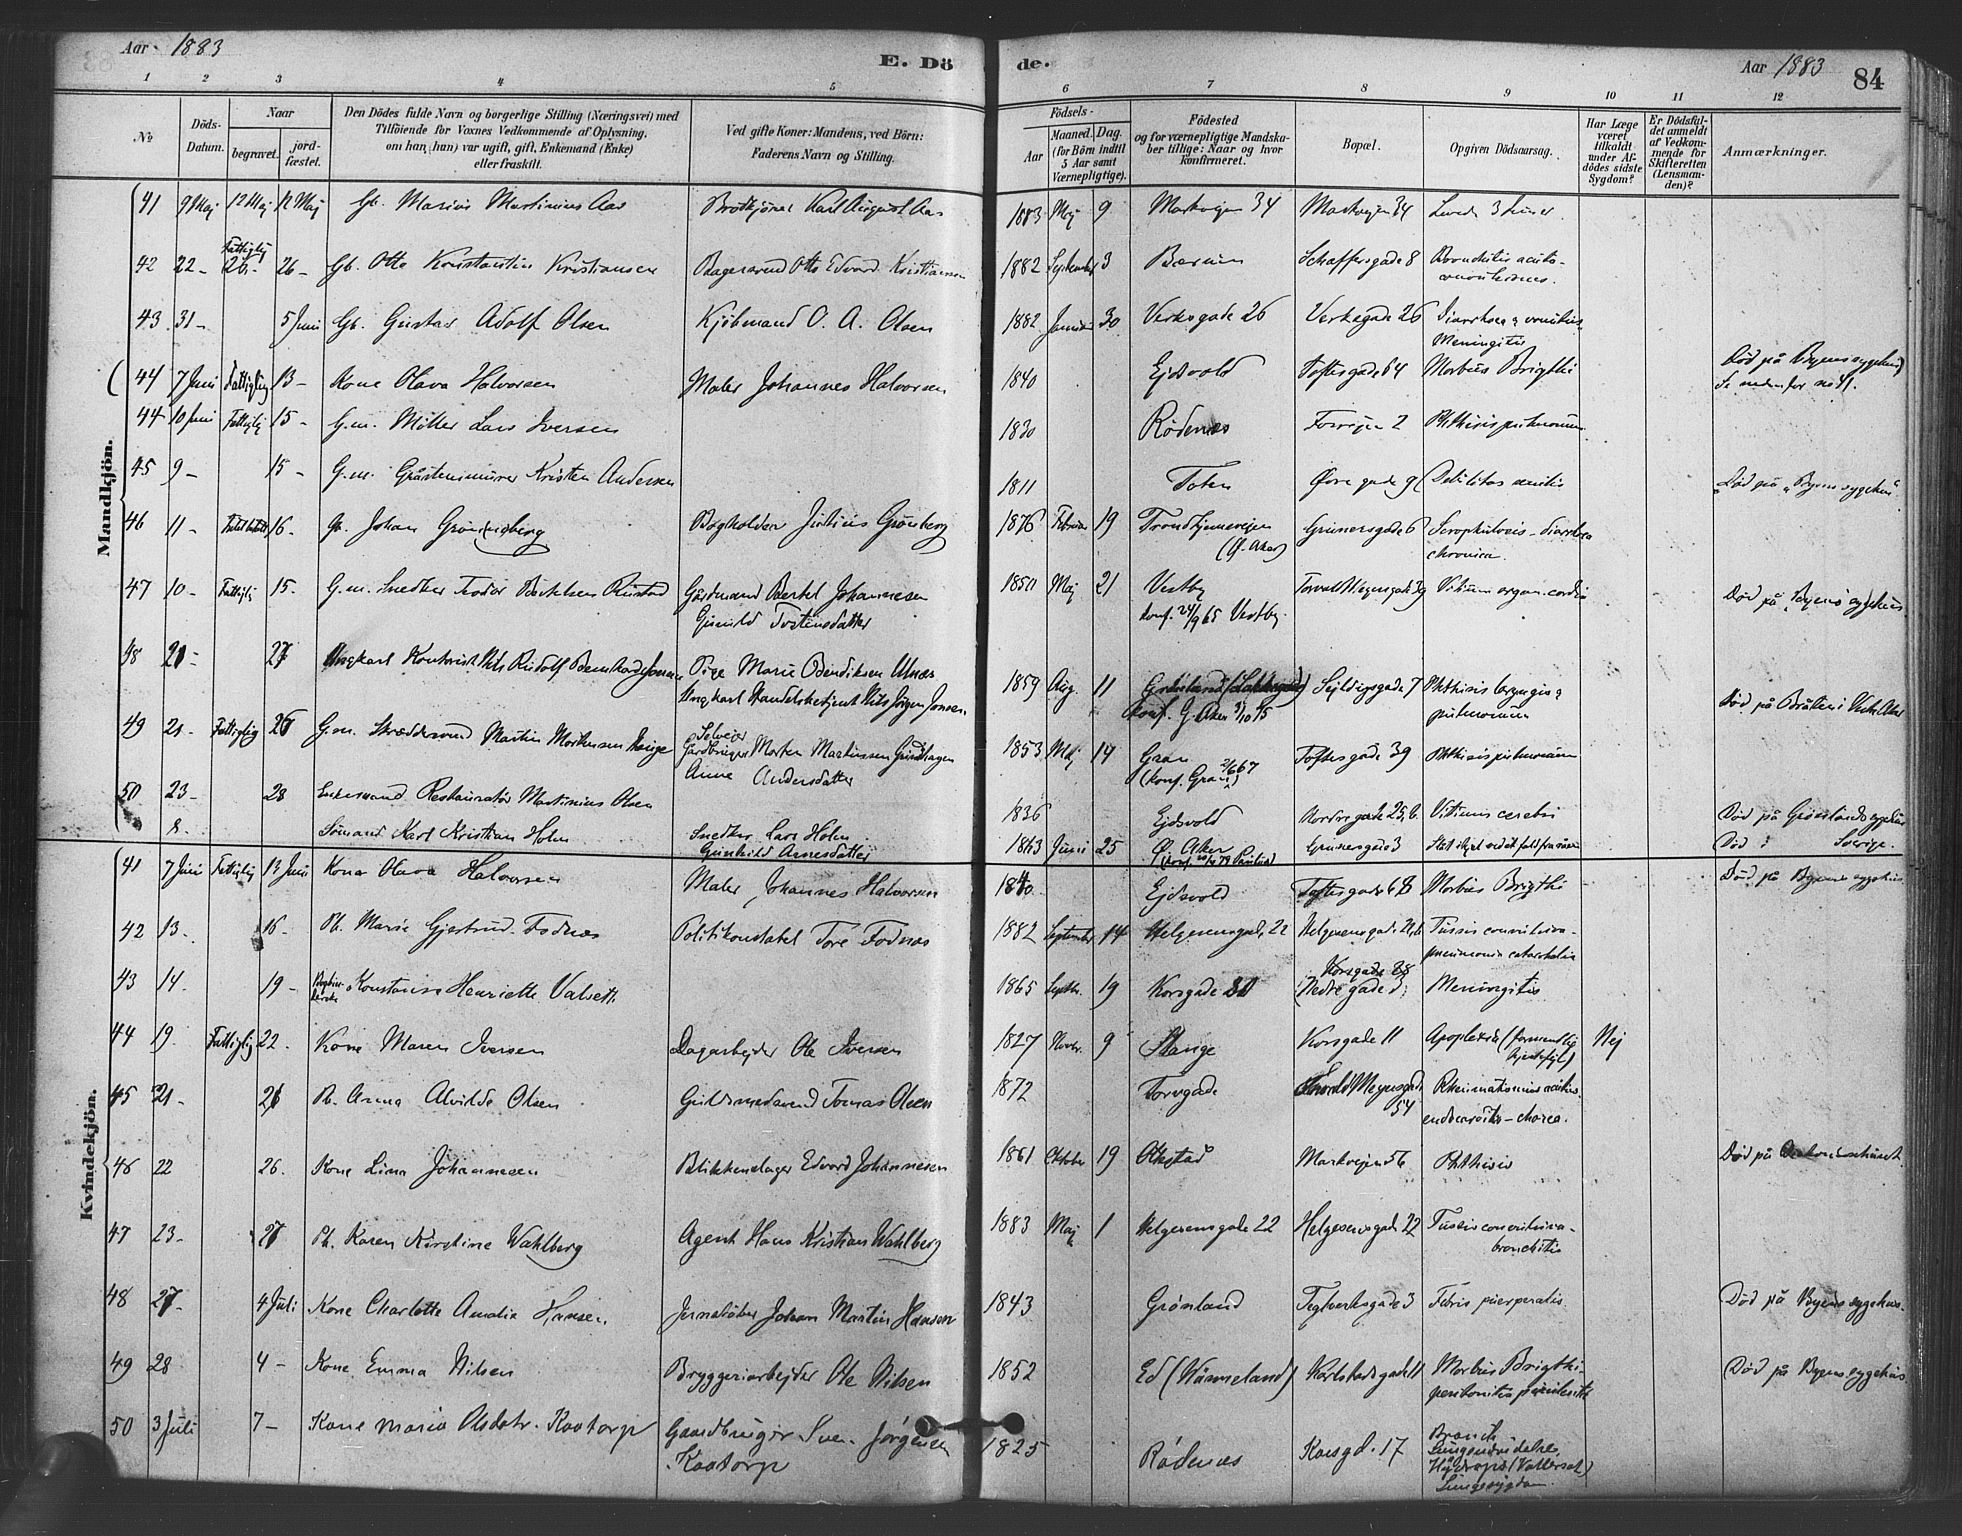 Aar 1883
E. Dö
de.
Aar 1883
84
1 2 3 4 5 6 7 8 9 10 11 12
No
Döds-
Datum.
Naar
begravet.
jord-
fæstet.
Den Dödes fulde Navn og borgerlige Stilling (Næringsvei) med
Tilföiende for Voxnes Vedkommende af Oplysning,
om han (hun) var ugift, gift, Enkemand (Enke)
eller fraskilt.
Ved gifte Koner: Mandens, ved Börn:
Faderens Navn og Stilling.
Födsels-
Aar
Maaned. Dag.
(for Börn indtil
5 Aar samt
Værnepligtige).
Födested
og for værnepligtige Mandska-
ber tillige: Naar og hvor
konfirmeret.
Bopæl.
Opgiven Dödsaarsag.
Har Læge
været
tilkaldt
under Af-
dödes sidste
Sygdom?
Er Dödsfal-
det anmeldt
af Vedkom-
mende for
Skifteretten
(Lensman-
den)?
Anmærkninger.
Mandkjön.
41 9 Maj 12 Maj 12 Maj Gb. Marius Martinius Aas Karl August Aas 1883 Maj 9 Markvejen 34 Markvejen 34 Levede 3 timer
42 22 - Fattiglig 26 - 26 - Gb. Otto Konstantin Kristiansen Bagersvend Otto Edvard Kristiansen 1882 September 3 Bærum Schaffersgade 8 Bronchitis acuta -
convulsiones.
43 31 - 5 Juni Gb. Gustav Adolf Olsen Kjöbmand O. A. Olsen 1882 Januar 30 Verksgade 26 Verksgade 26 Diarrhoea & vomitus
Meningitis
(44 7 Juni Fattiglig 13 - Kone Olava Halvorsen Maler Johannes Halvorsen 1840 Ejdsvold Toftesgade 64 Morbus Brigthi Död på Byens sygehus)
Se nedenfor no 41.
44 10 Juni Fattiglig 15 - G.m. Möller Lars Iversen 1830 Rödenæs 2 Phthisis pulmonum
45 9 - 15 - G.m. Gråstensmurer Kristen Andersen 1811 Toten Övregade 9 Debilitas senilis Död på "Byens sygehus"
46 11 - 16 - Gb. Johan Grönneberg Bogholder Julius Grönberg 1876 Februar 19 Trondhjemsvejen
(Ö. Aker) Grunersgade 6 Scrophulosis - diarrhoea
chronica.
47 10 - Fattiglig 15 - G.m. Snedker Teodor Bertelsen Rustad Gårdmand Bertel Johannesen
Gunild Tostensdatter 1850 Maj 21 Vestby
konf. 24/9 65 Vestby. Torvald Meyersgade 39 Vitium organ. cordis Död på "Byens sygehus
48 21 - 27 Ungkarl Kontorist Nils Rudolf Bernhard Jonsen Pige Marie Bendiksen Ulnæs
Ungkarl Handelsbetjent Nils Jörgen Jonsen 1859 Aug. 11 Grönland
Konf. G. Aker 3/10 75 Sejldugsgade 7 Phthisis laryngis &
pulmonum Död på Bråten i Vestre Aker
49 21 - Fattiglig 26 G.m. Skræddersvend Martin Mortensen Selvejer
Gårdbruger Morten Martinsen
Anne Andersdatter 1853 Maj 14 Gran
(konf. Gran 2/6 67) Toftesgade 39 Phthisis pulmonum
50 23 - 28 Enkemand Restauratör Martinius Olsen 1836 Ejdsvold Nordregade 25, b. Vitium cerebri Död på Grönlands sygehus
Sömand Karl Kristian Holm Snedker Lars Holm
Gunhild Arnesdatter 1863 Juni 25 Ö. Aker Grunersgade 3 Död i Sverige.
Kvindekjön.
41 7 Juni Fattiglig 13 Juni Kone Olava Halvorsen Maler Johannes Halvorsen 1840. Ejdsvold Toftesgade 68 Morbus Brigthi Död på Byens sygehus
42 13 - 16 - Pb. Marie Gjertrud Fodnæs Politikonstabel Tore Fodnæs 1882 September 14 Helgesensgade 22 Helgesensgade 22, b. Tussis convulsiva -
pneumonia catarrhalis
43 14. 19 - Konstanse Henriette Valseth 1865 Septbr. 19 Korsgade 30 Korsgade 38
(Nedregade 3) Meningitis
44 19. Fattiglig 22. Kone Maren Iversen Dagarbejder Ole Iversen 1827 Novbr. 9 Stange Korsgade 11 Apoplexia (formentlig
hjertefejl) Nej
45 21 - 26 Pb. Anna Alvilde Olsen Guldsmedsvend Tomas Olsen 1872 Torvgade Torvald Meyersgade
54 Rheumatismus acutus.
endocarditis - chorea.
46 22 26. Kone Lina Johannesen Blikkenslager Edvard Johannesen 1861 Oktober 19 Markvejen 56 Phthisis Död på Diakonissehuset.
47 23 - 27 Pb. Karen Kirstine Wahlberg Agent Hans Kristian Wahlberg 1883 Maj 1 Helgesensgade 22 Helgesensgade 22 Tussis convulsiva -
bronchitis
48 27 - 4 Juli Kone Charlotte Amalie Hansen Jernstöber Johan Martin Hansen 1843 Grönland Teglverksgade 3 Febris puerperalis Död på Byens sygehus.
49 28 4 - Kone Emma Nilsen Bryggeriarbejder Ole Nilsen 1852 Ed (Wärmeland) Karlstadsgade 11 Morbus Brigthi
peritonitis purulenta Död på Byens sygehus
50 3 Juli 7 - Kone Maria Olsdatr. Kaatorp Gaardbruger Sven Jörgensen
Kaatorp 1825 Rödenæs Korsgd. 17 Bronch.
Lungebetændelse,
Hydrops (Vattersot)
Lungesygdom.